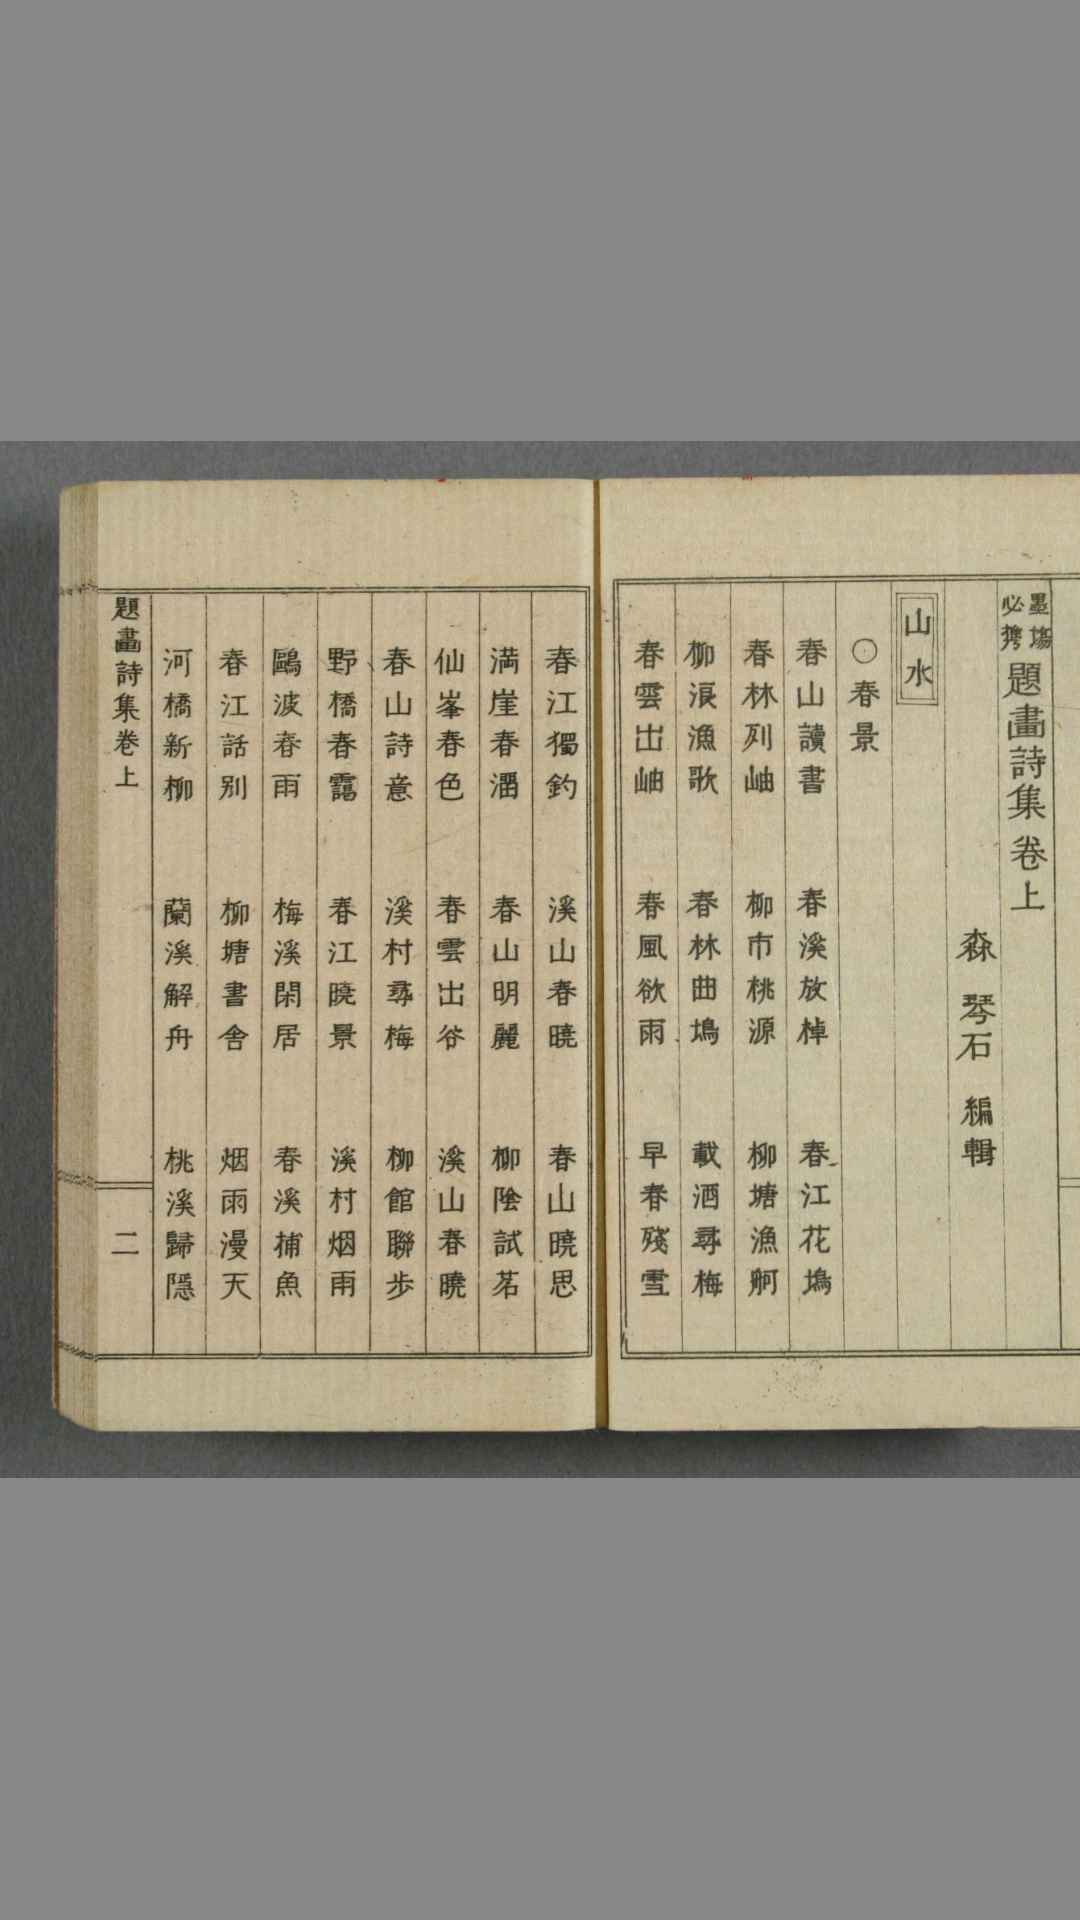 墨場必携 題畫詩集卷上
森 琴石 編輯
山水
○春景
春山讀書 春溪放棹 春江花塢
春林列岫 柳市桃源 柳塘漁舸
柳浪漁歌 春林曲塢 載酒尋梅
春雲出岫 春風欲雨 早春殘雪
春江獨釣 溪山春曉 春山曉思
満崖春溜 春山明麗 柳陰試茗
仙峯春色 春雲出谷 溪山春曉
春山詩意 溪村尋梅 柳館聯步
野橋春靄 春江曉景 溪村烟雨
鷗波春雨 梅溪閑居 春溪捕魚
春江話別 柳塘書舍 烟雨漫天
河橋新柳 蘭溪解舟 桃溪歸隱
題畫詩集卷上 二